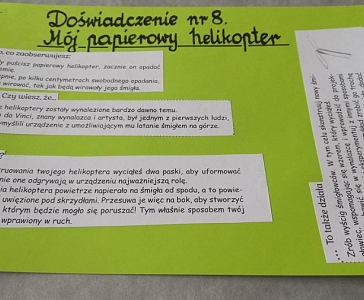 Doświadczenie nr 8.
Mój papierowy helikopter
o, co zaobserwujesz:
y puścisz papierowy helikopter, zacznie on opadać
emię.
pnie, po kilku centymetrach swobodnego opadania,
wirować, tak jak będą wirowały jego śmigła.
Czy wiesz, że...
e helikoptery zostały wynalezione bardzo dawno temu.
o da Vinci, znany wynalazca i artysta, był jednym z pierwszych ludzi,
ymyślili urządzenie z umożliwiającym mu latanie śmigłem na górze.
?
truowania twojego helikoptera wyciąłeś dwa paski, aby uformować
nie one odgrywają w urządzeniu najważniejszą rolę.
ia helikoptera powietrze napierało na śmigła od spodu, a to powie-
uwięzione pod skrzydłami. Przesuwa je więc na bok, aby stworzyć
którym będzie mogło się poruszać! Tym właśnie sposobem twój
wprawiony w ruch.
To także działa
Zrób wyścig śmigłowców. W tym celu skonstruuj nowy śmi-